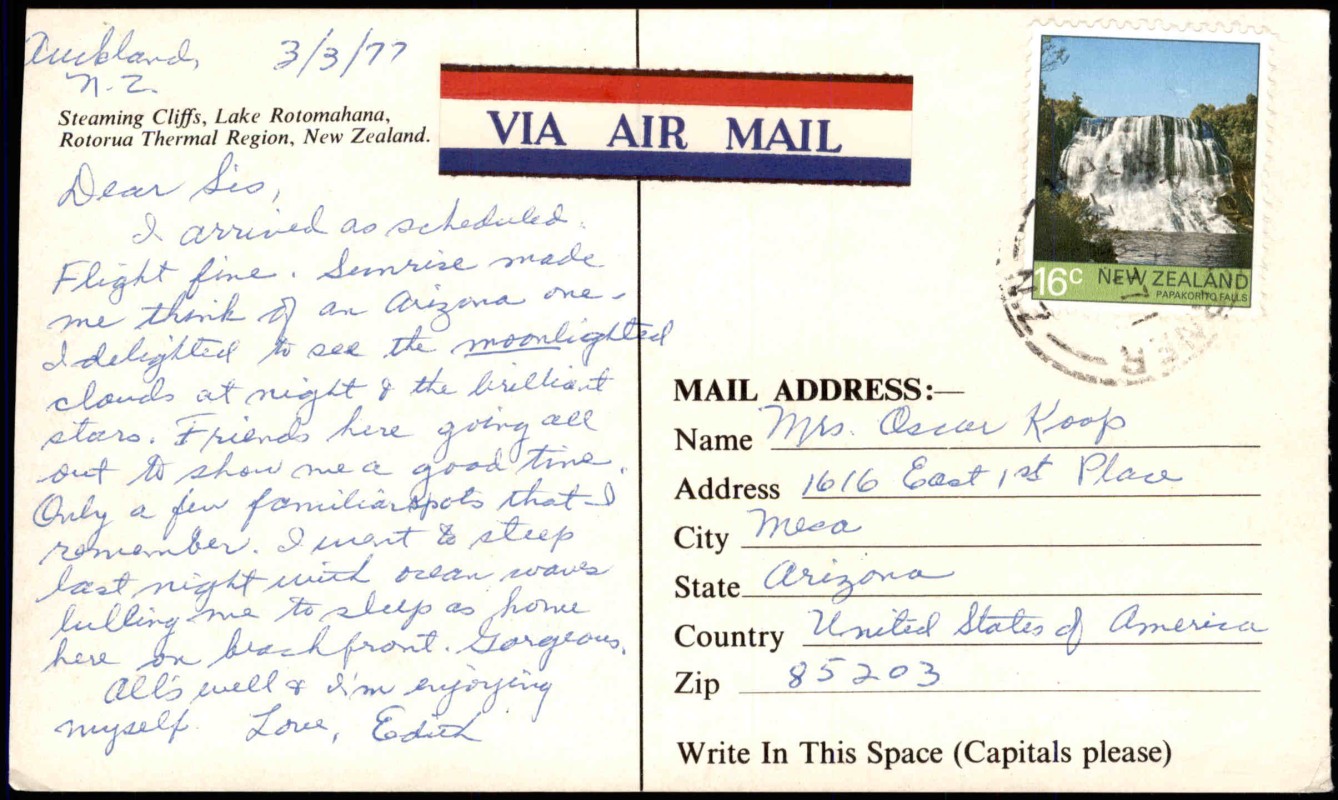 Auckland, 3/3/77
N.Z.
Steaming Cliffs, Lake Rotomahana,
Rotorua Thermal Region, New Zealand.
Dear Sis,
I arrived as scheduled.
Flight fine. Sunrise made
me think of an Arizona one.
I delighted to see the moonlighted
clouds at night & the brilliant
stars. Friends here going all
out to show me a good time.
Only a few familiar spots that I
remember. I went to sleep
last night with ocean waves
lulling me to sleep as home
here on beachfront. Gorgeous.
All's well & I'm enjoying
myself. Love, Edith
VIA AIR MAIL
16c NEW ZEALAND
PAPAKORITO FALLS
N.Z.
MAIL ADDRESS:—
Name Mrs. Oscar Koop
Address 1616 East 1st Place
City Mesa
State Arizona
Country United States of America
Zip 85203
Write In This Space (Capitals please)